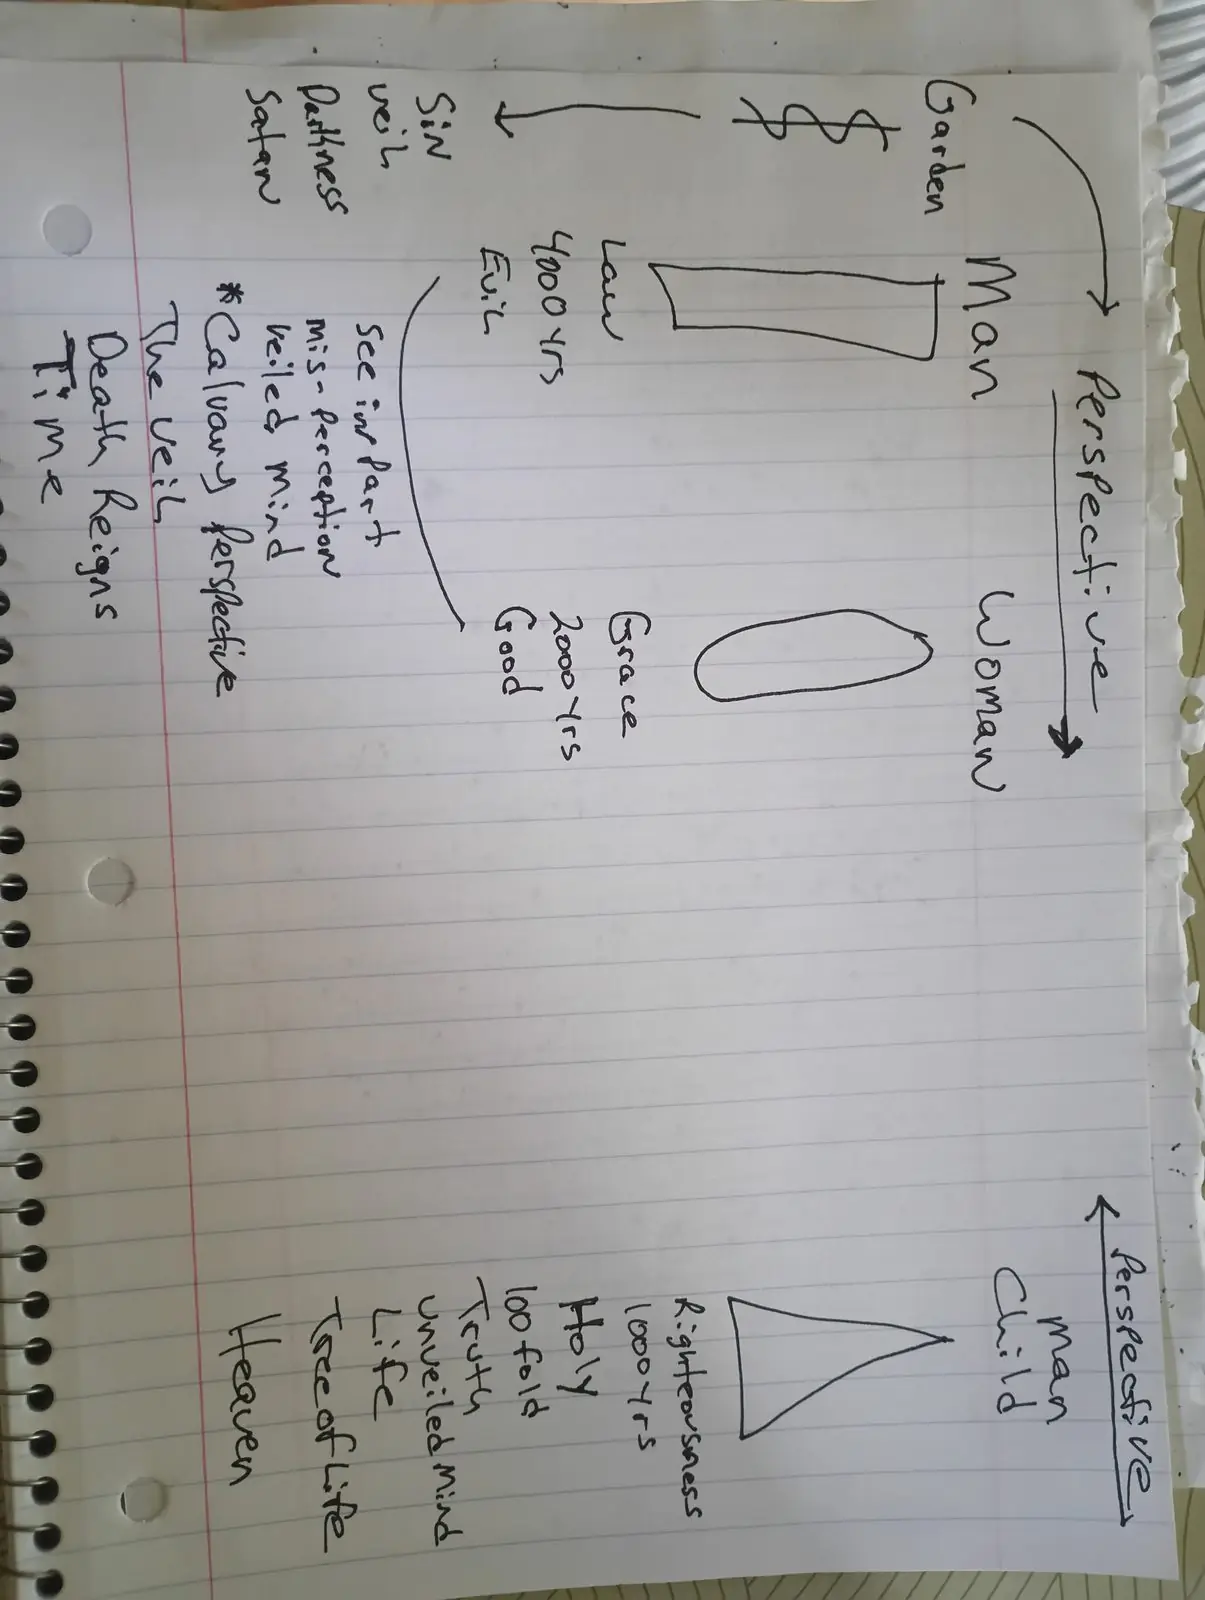 Perspective
Perspective
Garden
Man
Woman
Man
Child
$
Law
4000 Yrs
Evil
Grace
2000 Yrs
Good
Sin
Veil
Darkness
Satan
See in Part
mis-Perception
Veiled mind
*Calvary Perspective
The Veil
Death Reigns
Time
Righteousness
1000 Yrs
Holy
100 fold
Truth
unveiled Mind
Life
Tree of Life
Heaven